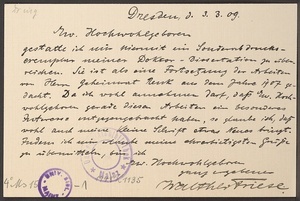 Dresden, d. 3.3.09.
Ew. Hochwohlgeboren
gestatte ich mir hiermit ein Sonderdrucks-
exemplar meiner Doktor-Dissertation zu über-
reichen. Sie ist als eine Fortsetzung der Arbeiten
von Herrn Geheimrat aus dem Jahre 1907 ge-
dacht. Da ich wohl annehmen darf, daß Ew. Hoch-
wohlgeboren gerade diesen Arbeiten ein besonderes
Interesse entgegengebracht haben, so glaube ich, daß
wohl auch meine kleine Schrift etwas Neues bringt.
Indem ich meine ehrerbietigsten Grüße
zu übermitteln, bin ich
Ew. Hochwohlgeboren
ganz ergebener
Walther Friese